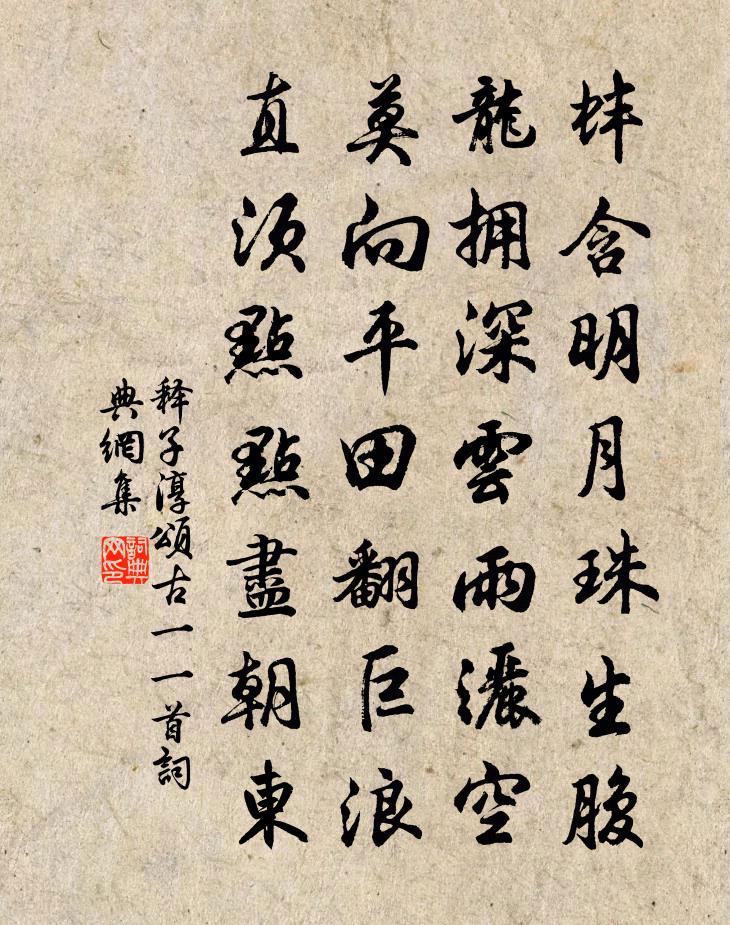 蚌含明月珠生腹
龍拥深雲雨灑空
莫向平田翻巨浪
直须點點盡朝東
释子淳頌古一一首詞
典網集
詞典
网印